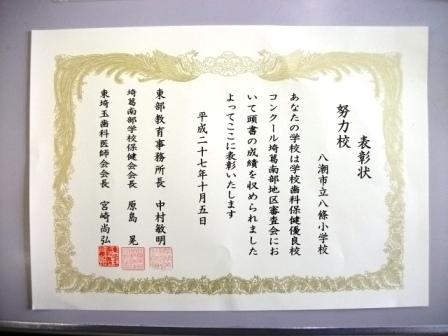 表彰状
八潮市立八條小学校
努力校
あなたの学校は学校歯科保健優良校
コンクール埼葛南部地区審査会にお
いて頭書の成績を収められました
よってここに表彰いたします
平成二十七年十月五日
東部教育事務所長 中村敏明
埼葛南部学校保健会会長 原島晃
東埼玉歯科医師会会長 宮崎尚弘